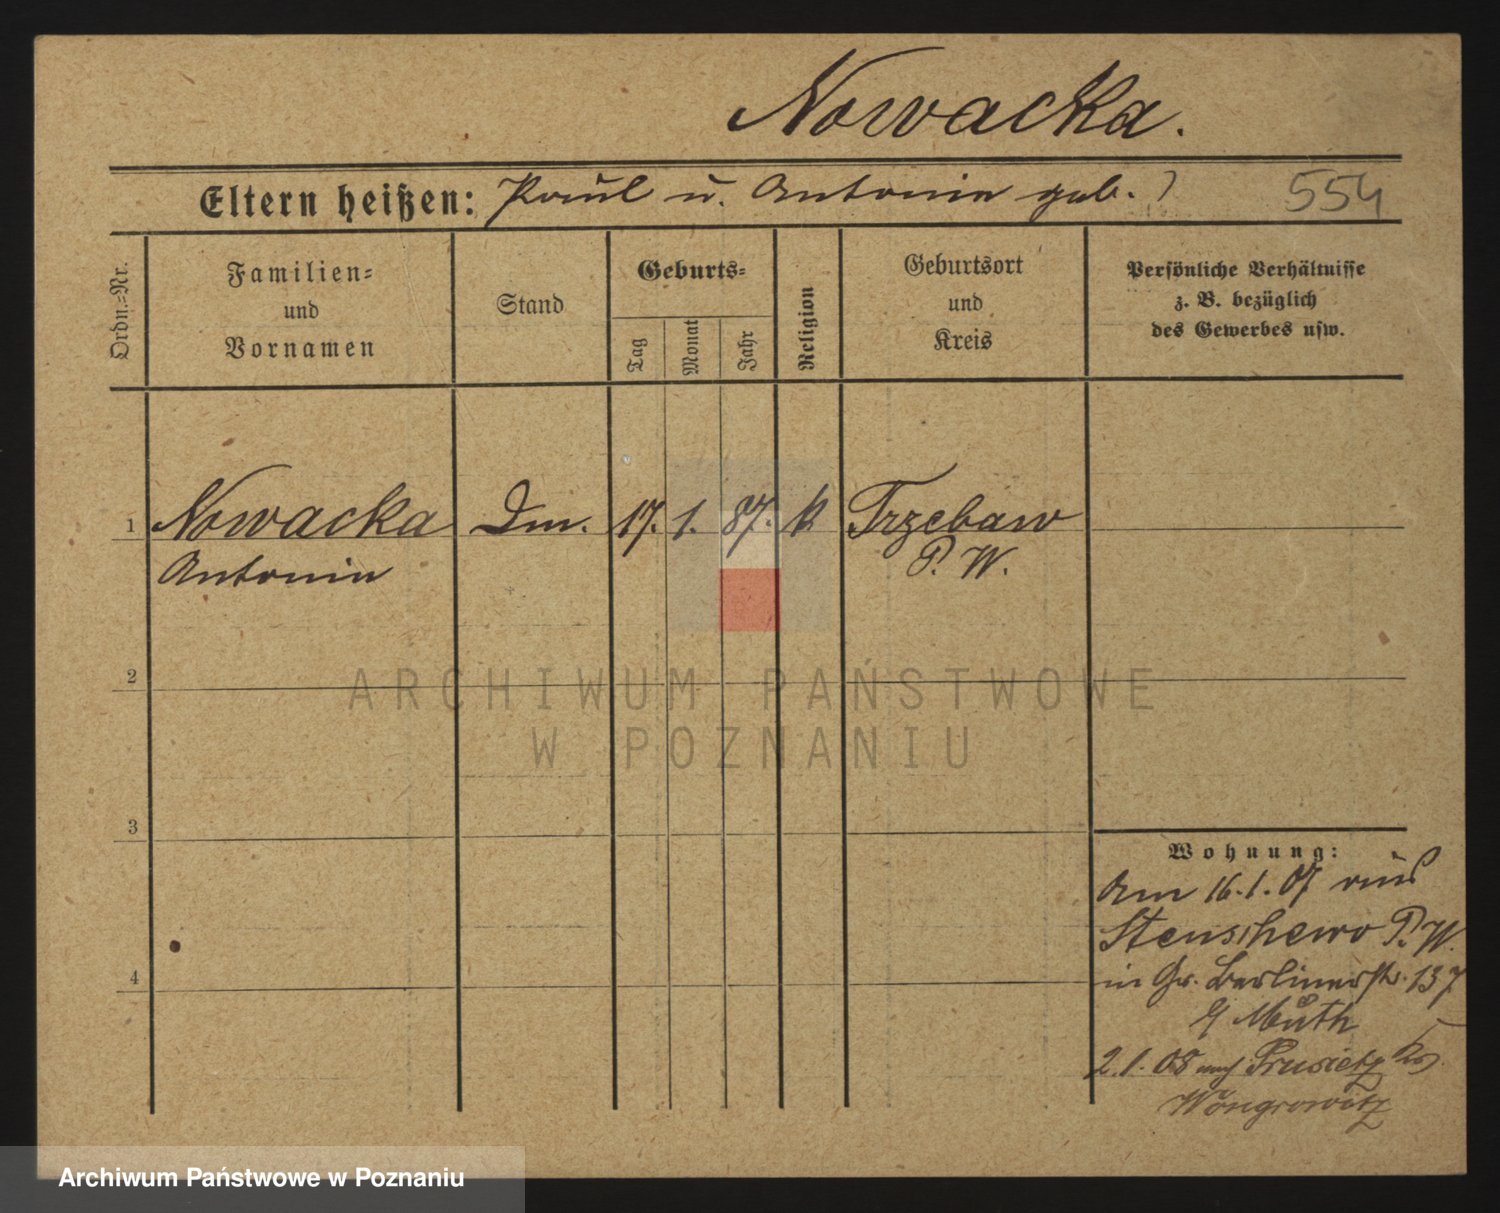 Nowacka.
Eltern heißen: Paul u. Antonie geb. ? 554
Ordn.=Nr.
Familien=
und
Vornamen
Stand
Geburts=
Tag
Monat
Jahr
Religion
Geburtsort
und
Kreis
Persönliche Verhältnisse
z. B. bezüglich
des Gewerbes usw.
1 Nowacka Dm. 17. 1. 87. k Trzebaw
Antonie P. W.
2
ARCHIWUM PAŃSTWOWE
W POZNANIU
3
Wohnung:
Am 16.1.07 aus
Stenschewo P. W.
4 in Gr. Berlinerstr. 137
Muth
2.1.08 nach Prusietz Krs.
Wongrowitz
Archiwum Państwowe w Poznaniu